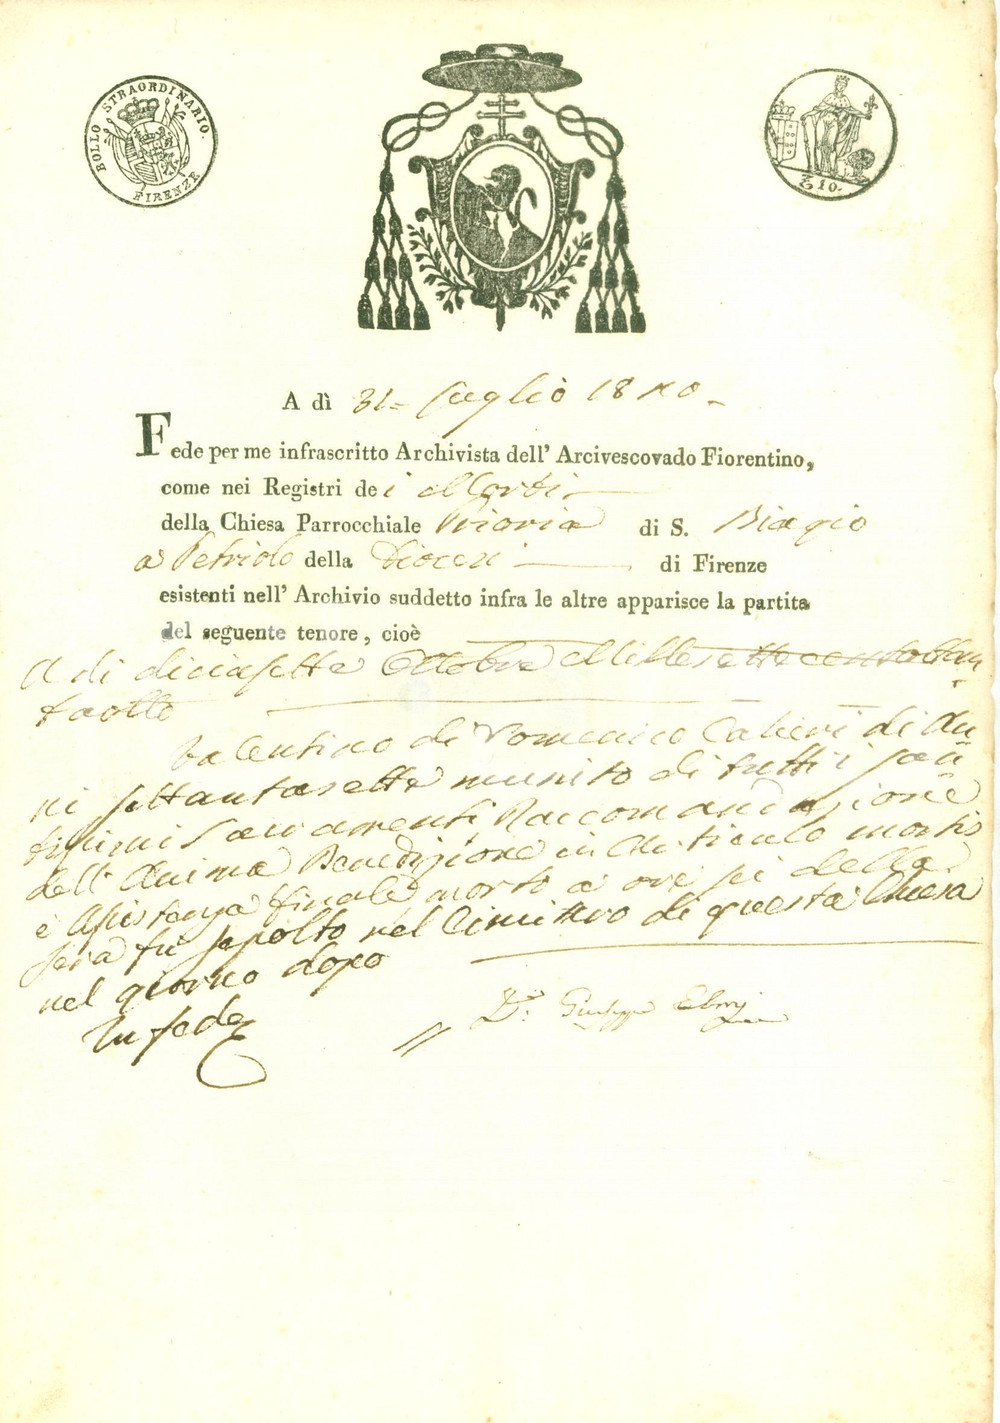 BOLLO STRAORDINARIO.
FIRENZE
10.
A dì 31 = Luglio 18
Fede per me infrascritto Archivista dell' Arcivescovado Fiorentino,
come nei Registri de i Morti
della Chiesa Parrocchiale Prioria di S. Biagio
a Petriolo della Diocesi di Firenze
esistenti nell' Archivio suddetto infra le altre apparisce la partita
del seguente tenore, cioè
A dì diciasette Ottobre Millesettecentottan
taotto
Valentino di Domenico di An
ni settantasette munito di tutti i San
tissimi Sacramenti Raccomandazione
dell' Anima Benedizione in Articulo mortis
e Assistenza finale morto a ore sei della
sera fu sepolto nel Cimitero di questa Chiesa
nel giorno dopo
In fede
Giuseppe